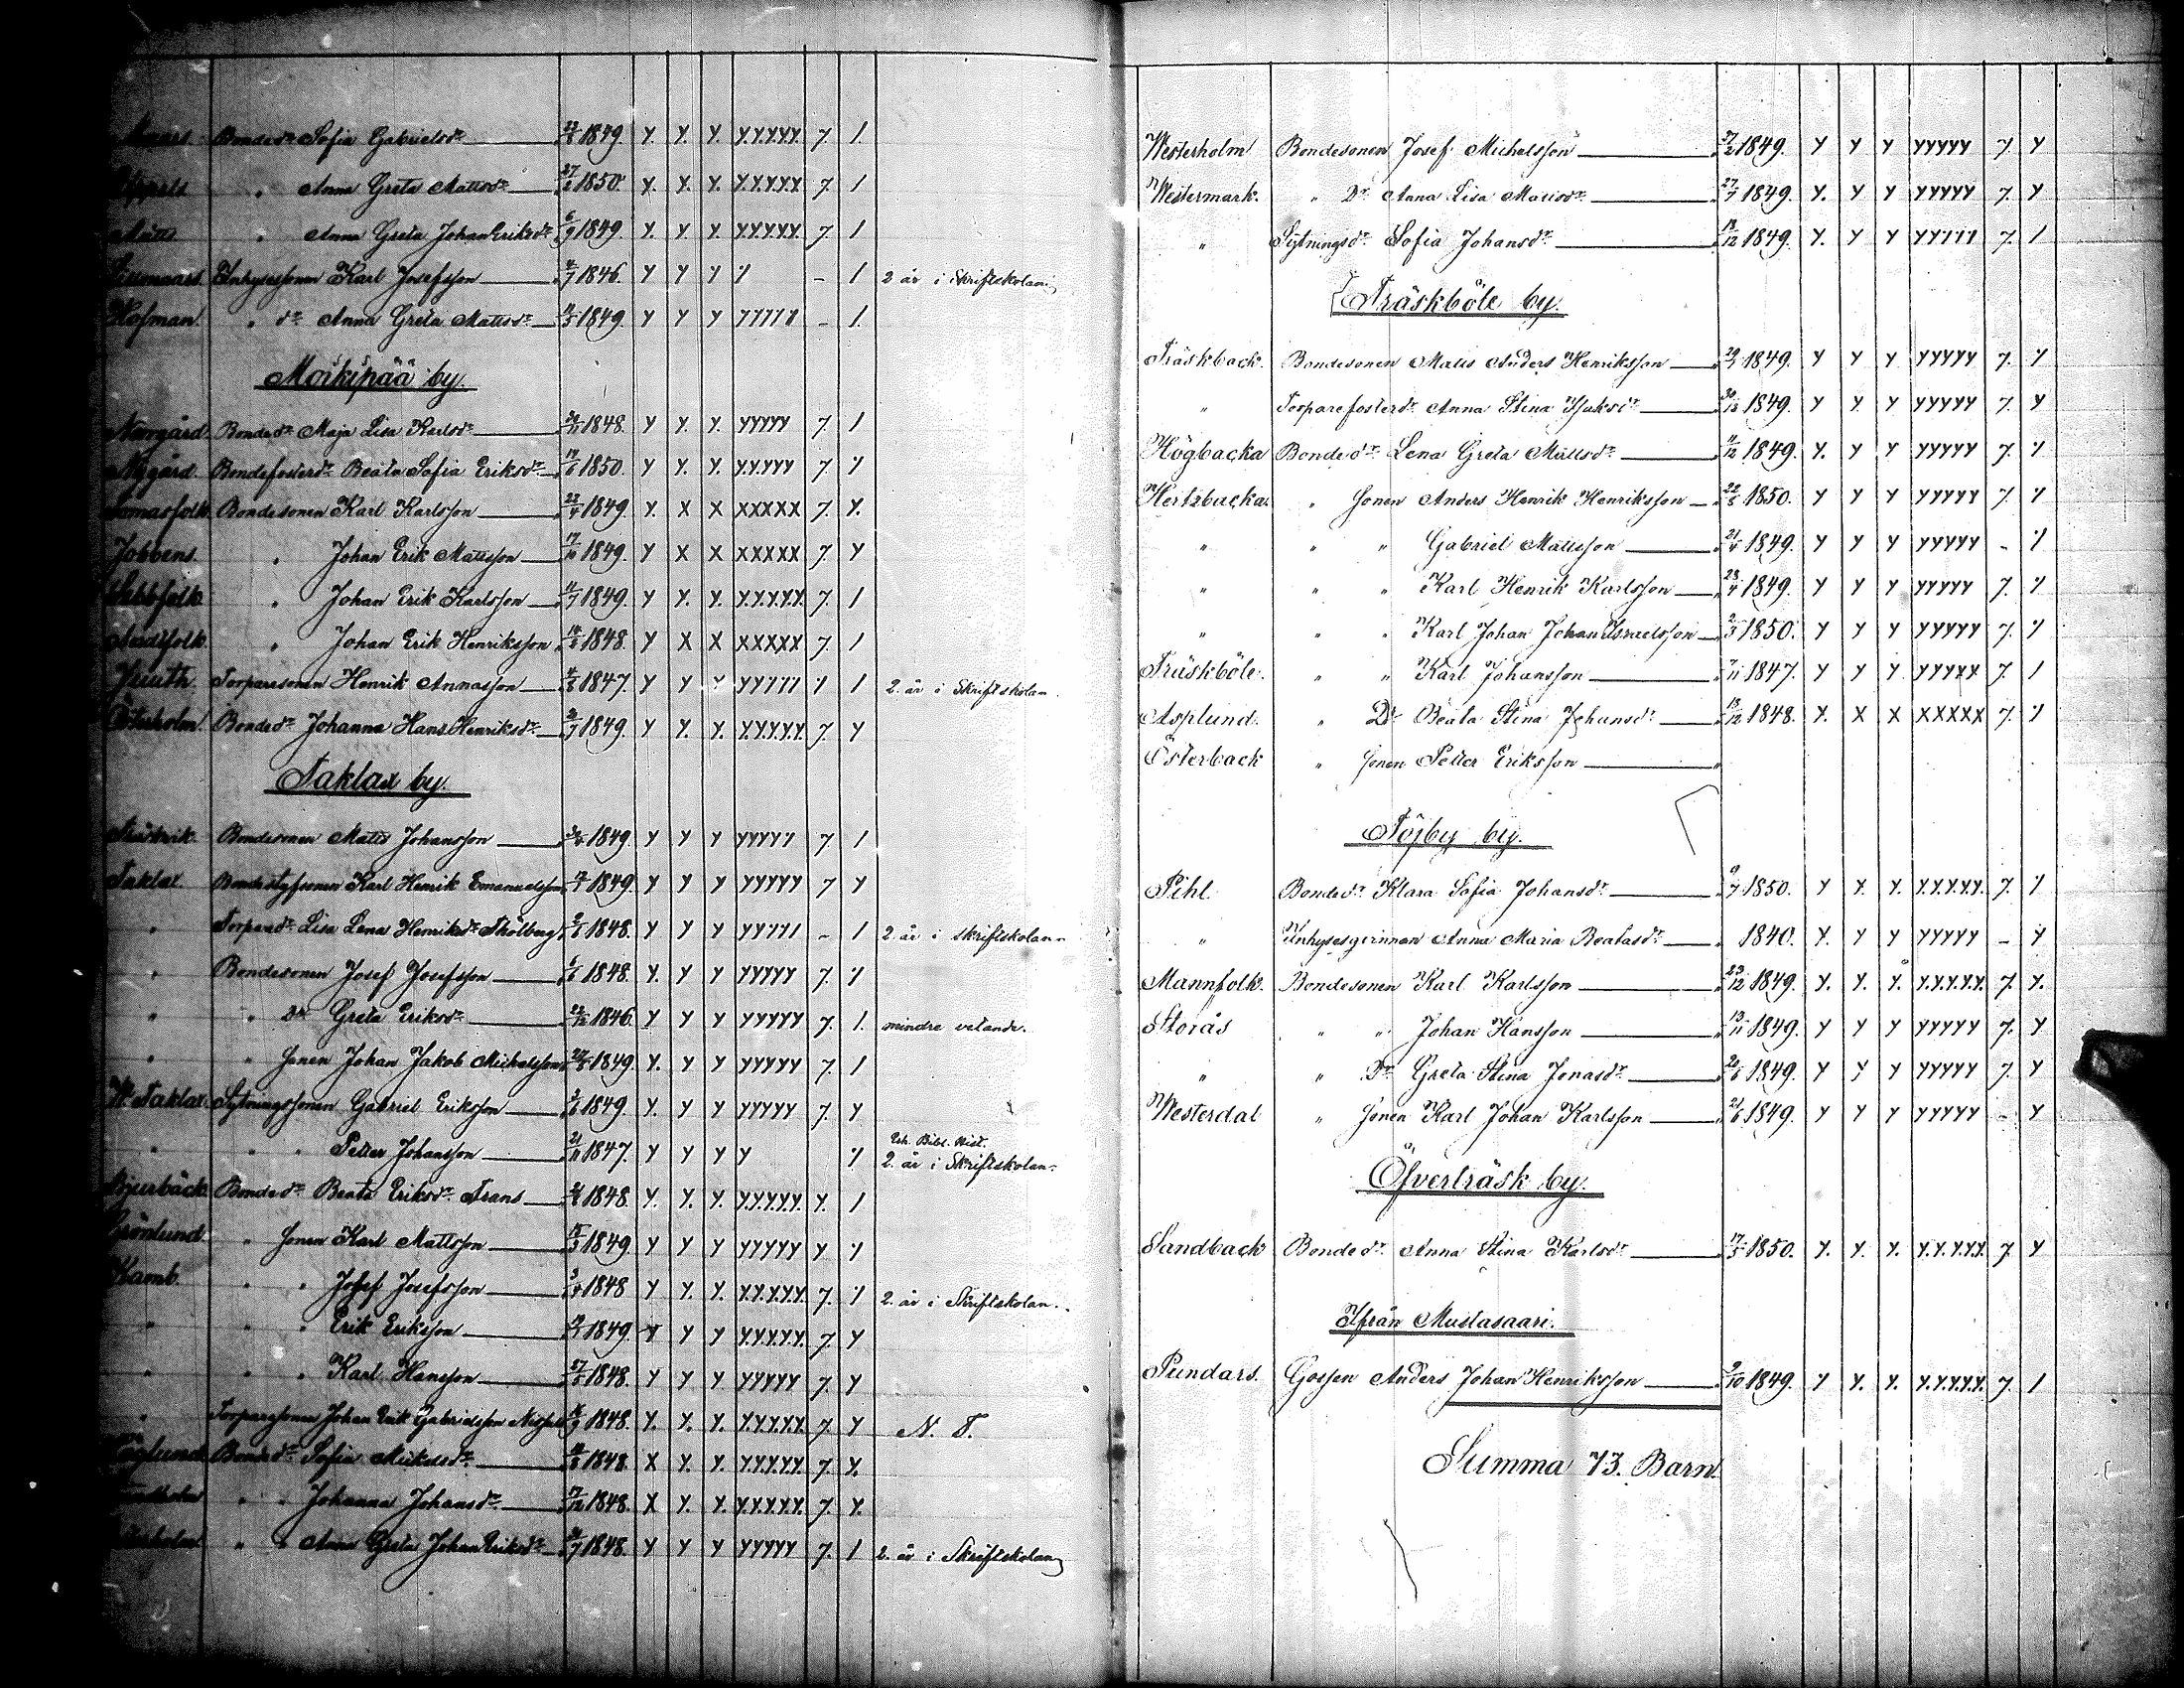 Bonde dr Sofia Gabrielsdr 1849. Y. Y. Y. Y.Y.Y.Y.Y. 7. 1.
" Anna Greta Mattsdr 27/2 1850. Y. Y. Y. Y.Y.Y.Y.Y. 7. 1
" Anna Greta Johan Eriksdr 6/9 1849. Y. Y. Y. Y.Y.Y.Y.Y. 7. 1
Inhysessonen Karl Josefsson 1846. Y Y Y Y - 1 2 år i Skriftskolan
Hofman. " dr Anna Greta Mattsdr 1849. Y Y Y - 1.
Moikipää by.
Norrgård Bonde dr Maja Lisa Karlsdr 1848. Y Y. Y. YYYYY 7. 1
Nygård Bondefosterdr Beata Sofia Eriksdr 1850. Y Y. Y. YY.YYY 7 Y
Tomasfolk Bondesonen Karl Karlsson 22/4 1849. Y. X X XXXXX 7. Y.
Jobbens " Johan Erik Mattsson 17/10 1849. Y X X XXXXX 7 Y
" Johan Erik Karlsson 1849. Y Y. Y. Y.Y.Y.Y.Y. 7. 1
" Johan Erik Henriksson 1848. Y X X XXXXX 7. 1
Torparesonen Henrik Annasson 1847. Y Y Y 1 2. år i Skriftskolan.
Bonde dr Johanna Hans Henriksdr 1849. Y Y. Y. Y.Y.Y.Y.Y. 7. Y
Taklax by.
Träskvik Bondesonen Matts Johansson 1849. Y Y Y 7. 1
Taklax Bondestyfsonen Karl Henrik Emanuelsson 1849. Y Y Y YYYYY 7 Y
" Torparedr Lisa Lena Henriksdr Thölberg 1848. Y Y Y - 1 2. år i skriftskolan.
" Bondesonen Josef Josefsson 6/6 1848. Y. Y Y YYYYY 7. Y
" " Dr Greta Eriksdr 1846. Y Y Y YYYYY 7. 1. mindre vetande.
" " sonen Johan Jakob Mickelsson 1849. Y. Y Y YYYYY 7. 1
W. Taklax Sytningssonen Gabriel Eriksson 1849. Y. Y Y YYYYY 7. Y
" " " Petter Johansson 21/11 1847. Y Y Y Y Y Bibl. Hist.
2. år i Skriftskolan.
Bjurbäck Bonde dr Beata Eriksdr Frans 1848. Y. Y. Y. Y.Y.Y.Y.Y. Y. 1
Grönlund " sonen Karl Mattsson 1849. Y Y Y YYYYY Y Y
Kamb. " " Josef Josefsson 1848 Y Y. Y. Y.Y.Y.Y.Y. 7. Y 2. år i Skriftskolan.
" " " Erik Eriksson 1849. Y Y Y Y.Y.Y.Y.Y. 7. Y
" " " Karl Hansson 27/6 1848. Y Y Y YYYYY 7. Y
" Torparesonen Johan Erik Gabrielsson 1848. Y. Y. Y. Y.Y.Y.Y.Y. 7. Y N. T.
Höglund Bonde dr Sofia Mickelsdr 1848. X Y. Y. Y.Y.Y.Y.Y. 7. Y.
" " Johanna Johansdr 17/12 1848. X Y. Y. Y.Y.Y.Y.Y. 7. Y.
" " Anna Greta Johan Eriksdr 1848. Y Y Y YYYYY 7. 1 2. år i Skriftskolan
Westerholm Bondesonen Josef Michelsson 27/2 1849. Y Y Y YYYYY 7. Y
Westermark. " Dr Anna Lisa Mattsdr 27/7 1849. Y. Y Y YYYYY 7. Y
" Sytningsdr Sofia Johansdr 18/12 1849. Y. Y Y 7. 1
Träskböle by.
Träskback. Bondesonen Matts Anders Henriksson 1849. Y Y Y YYYYY 7. Y
" Torparefosterdr Anna Stina Isaksdr 30/12 1849. Y Y. Y YYYYY 7. Y
Högbacka Bonde dr Lena Greta Mattsdr 11/12 1849. Y. Y Y YYYYY 7. Y
Hertsbacka. " sonen Anders Henrik Henriksson 22/8 1850. Y Y Y YYYYY 7. Y
" " " Gabriel Mattsson 21/4 1849. Y Y Y YYYYY - Y
" " " Karl Henrik Karlsson 23/4 1849. Y Y Y YYYYY 7. Y
" " " Karl Johan Johan Israelsson 2/3 1850. Y Y Y YYYYY 7. Y
Träskböle. " " Karl Johansson 7/11 1847. Y Y Y YYYYY 7. 1
Asplund. " Dr Beata Stina Johansdr 13/12 1848. Y. X X XXXXX 7. Y
Österback " sonen Petter Eriksson "
Töjby by.
Pihl. Bonde dr Klara Sofia Johansdr 9/7 1850. Y Y. Y. Y.Y.Y.Y.Y. 7. Y
" Inhysesqvinnan Anna Maria Beatasdr 1840. Y. Y Y YYYYY - Y
Mannfolk. Bondesonen Karl Karlsson 23/12 1849. Y. Y. Y. Y.Y.Y.Y.Y. 7. Y.
Storås " " Johan Hansson 13/11 1849. Y Y Y YYYYY 7. Y
" " Dr Greta Stina Jonasdr 20/6 1849. Y Y Y YYYYY 7. Y
Westerdal " sonen Karl Johan Karlsson 21/6 1849. Y Y Y YYYYY - Y
Öfverträsk by.
Sandback Bonde dr Anna Stina Karlsdr 17/5 1850. Y. Y. Y. Y.Y.Y.Y.Y. 7. Y
Ifrån Mustasaari.
Pundars. Gossen Anders Johan Henriksson 9/10 1849. Y Y. Y. Y.Y.Y.Y.Y. 7. 1
Summa 73. Barn.